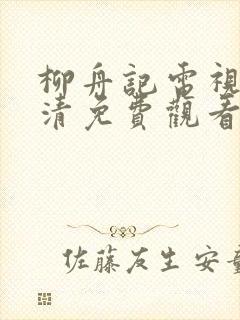 柳舟記電視
清免費觀看
佐藤友生安